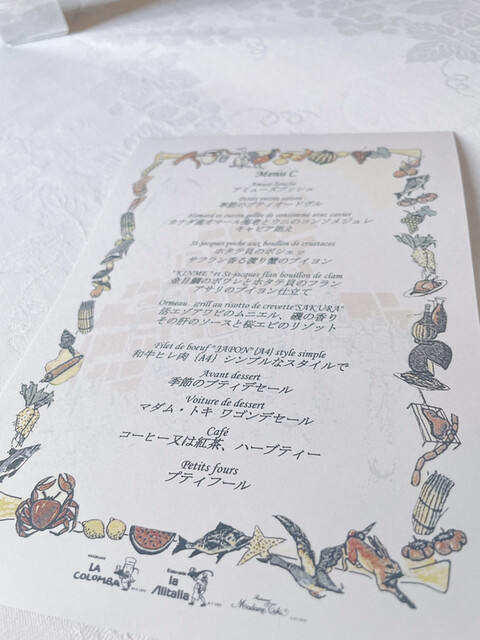 Menu C
アミューズブッシュ
季節のプティオードヴル
Homard et oursin gelée de consommé avec caviar
カナダ産オマール海老とウニのコンソメジュレ
キャビア添え
St-jacques poche aux bouillon de crustaces
ホタテ貝のポシェ
サフラン香る渡り蟹のブイヨン
"KINME" et St-jacques flan bouillon de clam
金目鯛のポワレとホタテ貝のフラン
アサリのブイヨン仕立て
Ormeau grill au risotto de crevette"SAKURA"
活エゾアワビのムニエル、磯の香り
その肝のソースと桜エビのリゾット
Filet de boeuf "JAPON"(A4) style simple
和牛ヒレ肉（A4）シンプルなスタイルで
Avant dessert
季節のプティデセール
Voiture de dessert
マダム・トキ ワゴンデセール
Café
コーヒー又は紅茶、ハーブティー
Petits fours
プティフール
LA COLOMBA
la Alitalia
Madame Toki